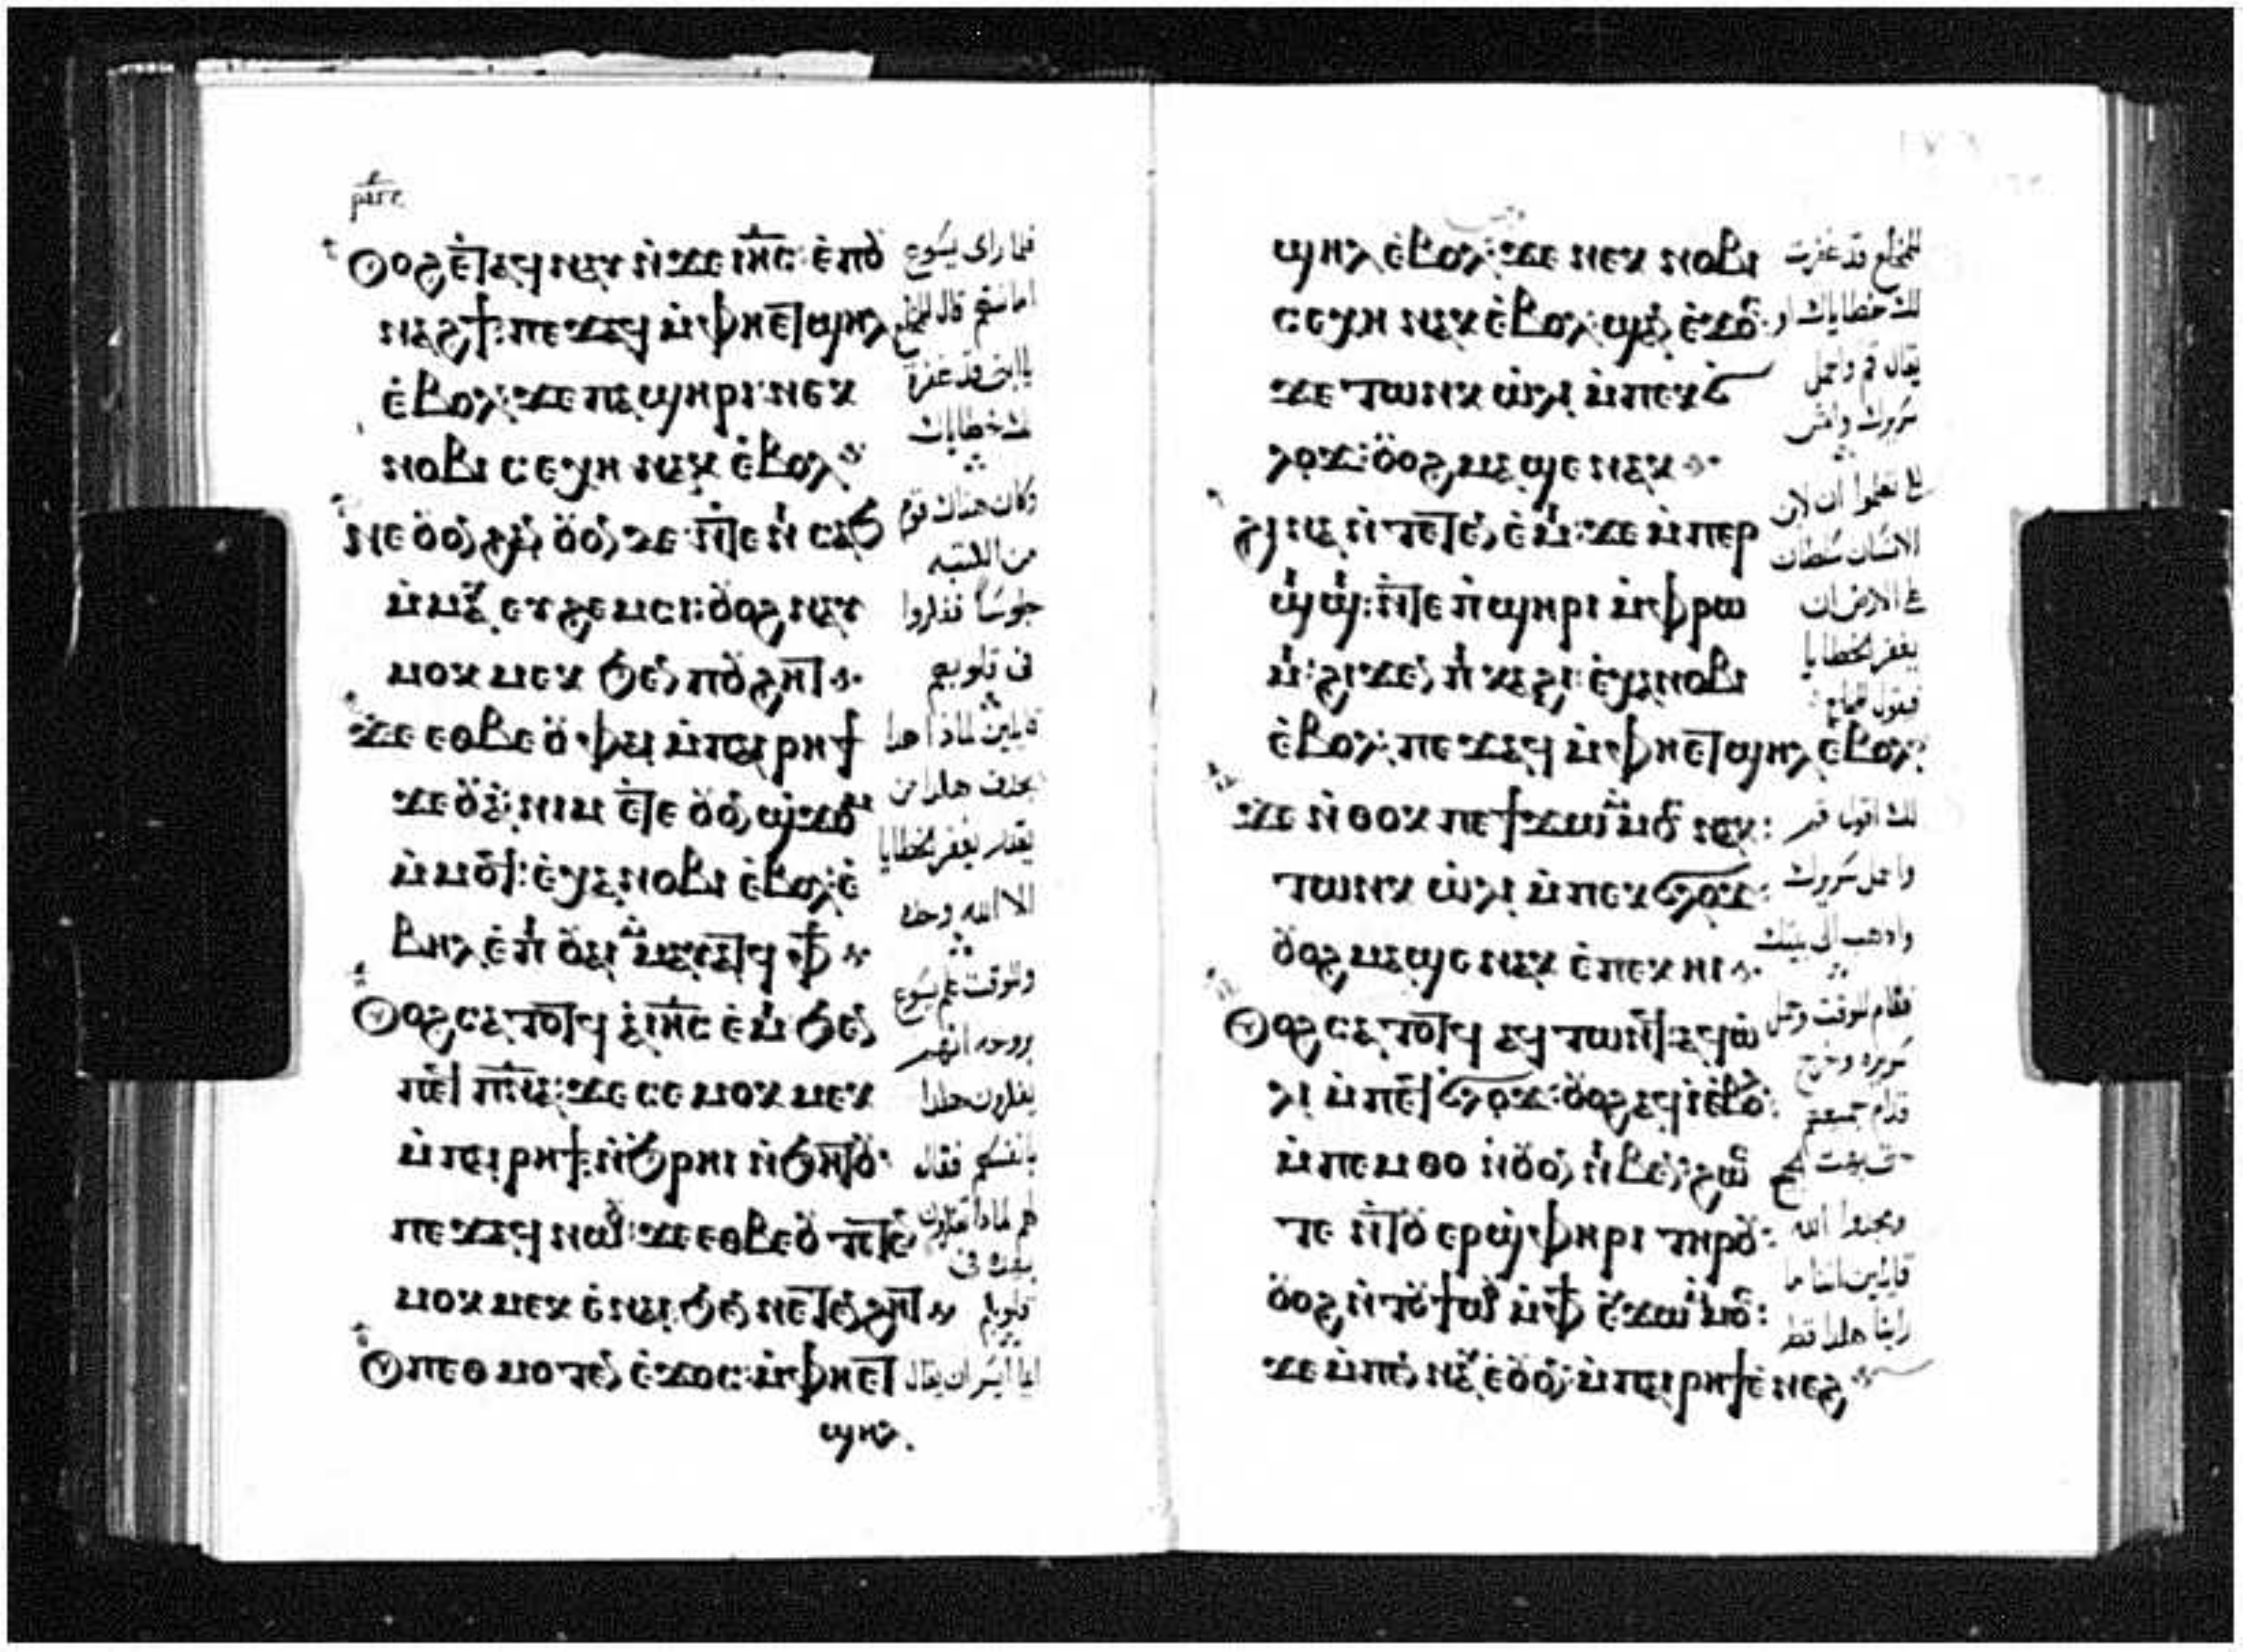 ⲟⲩⲟϩ ⲉⲧⲁϥⲛⲁⲩ ⲛ̀ϫⲉ ⲓⲏⲥ ⲉ̀ⲡⲟⲩ
ⲛⲁϩϯ: ⲡⲉϫⲁϥ ⲙ̀ⲫⲏⲉⲧϣⲏⲗ
ⲉ̀ⲃⲟⲗ: ϫⲉ ⲡⲁϣⲏⲣⲓ: ⲛⲉⲕ
ⲛⲟⲃⲓ ⲥⲉⲭⲏ ⲛⲁⲕ ⲉ̀ⲃⲟⲗ
ⲙ̀ⲙⲁⲩ ⲉⲩϩⲉⲙⲥⲓ: ⲟⲩⲟϩ ⲛⲁⲩ
ⲙⲟⲕⲙⲉⲕ ϧⲉⲛ ⲡⲟⲩϩⲏⲧ
ϫⲉ ⲉⲑⲃⲉⲟⲩ ⲫⲁⲓ ⲙ̀ⲡⲁⲓⲣⲏϯ
ϫⲉⲟⲩⲁ̀: ⲛⲓⲙ ⲉⲧⲉ ⲟⲩⲟⲛ ϣϫⲟⲙ
ⲙ̀ⲙⲟϥ: ⲉ̀ⲭⲁ ⲛⲟⲃⲓ ⲉ̀ⲃⲟⲗ: ⲉ̀
ⲃⲏⲗ ⲉ̀ⲡ ⲟⲩⲁⲓ ⲙⲙⲁⲩⲁⲧϥ ⲫϯ
ⲟⲩⲟϩ ⲥⲁⲧⲟⲧϥ ⲁ̀ ⲓⲏⲥ ⲉ̀ⲙⲓ ϧⲉⲛ
ⲡⲉϥ ⲡⲛⲁ: ϫⲉ ⲥⲉⲙⲟⲕⲙⲉⲕ
ⲙ̀ⲡⲁⲓⲣⲏϯ: ⲛ̀ϧⲣⲏⲓ ⲛ̀ϧⲏⲧⲟⲩ
ⲡⲉϫⲁϥ ⲛⲱⲟⲩ: ϫⲉ ⲉⲑⲃⲉⲟⲩ ⲧⲉⲧⲉⲛ
ⲙⲟⲕⲙⲉⲕ ⲉ̀ⲛⲁⲓ ϧⲉⲛ ⲛⲉⲧⲉⲛϩⲏⲧ
ⲟⲩ ⲡⲉⲑⲙⲟⲧⲉⲛ ⲉ̀ϫⲟⲥ: ⲙ̀ⲫⲏⲉⲧ
ϣⲏⲗ
فلما راى يسوع
امانتهم قال للمخلع
يا ابنى قد غفرت
لك خطاياك
وكان هناك قوم
من الكتبه
جلوسا ففكروا
فى قلوبهم
قايلين لماذا هذا
يجدف هكذا من
يقدر يغفر الخطايا
الا الله وحده
وللوقت علم يسوع
بروحه انهم
يفكرون هكذا
بانفسهم فقال
لهم لماذا تفكرون
بهذه فى
قلوبكم
ايما ايسر ان يقال
ϣⲏⲗ ⲉ̀ⲃⲟⲗ: ϫⲉ ⲛⲉⲕ ⲛⲟⲃⲓ
ⲥⲉⲭⲏ ⲛⲁⲕ ⲉ̀ⲃⲟⲗ: ϣⲁⲛ ⲉ̀ϫⲟⲥ
ϫⲉ ⲧⲱⲛⲕ ⲱ̀ⲗⲓ ⲙ̀ⲡⲉⲕϭ
ⲗⲟϫ: ⲟⲩⲟϩ ⲙⲁϣⲉ ⲛⲁⲕ
ϩⲓⲛⲁ ⲛ̀ⲧⲉⲧⲉⲛ ⲉ̀ⲙⲓ: ϫⲉ
ϣⲓϣⲓ: ⲛ̀ⲧⲉ ⲡ̀ϣⲏⲣⲓ ⲙ̀ⲫⲣⲱ
ⲙⲓ: ϩⲓϫⲉⲛ ⲡⲓⲕⲁϩⲓ: ⲉ̀ⲭⲁ ⲛⲟⲃⲓ
ⲉ̀ⲃⲟⲗ: ⲡⲉϫⲁϥ ⲙ̀ⲫⲏⲉⲧϣⲏⲗ ⲉⲃⲟⲗ:
ϫⲉ ⲛ̀ⲑⲟⲕ ⲡⲉϯϫⲱ ⲙⲙⲟⲥ ⲛⲁⲕ:
ⲧⲱⲛⲕ ⲱ̀ⲗⲓ ⲙ̀ⲡⲉⲕϭⲗⲟϫ:
ⲟⲩⲟϩ ⲙⲁϣⲉ ⲛⲁⲕ ⲉ̀ⲡⲉⲕⲏⲓ
ⲟⲩⲟϩ ⲥⲁⲧⲟⲧϥ ⲁϥⲧⲱⲛϥ: ⲁϥⲱ̀
ⲗⲓ ⲙ̀ⲡⲉϥϭⲗⲟϫ: ⲟⲩⲟϩ ⲁϥⲓ̀ ⲉⲃⲟⲗ:
ⲙ̀ⲡⲉⲙⲑⲟ ⲛ̀ⲟⲩⲟⲛ ⲛⲓⲃⲉⲛ: ϩⲱⲥ
ⲧⲉ ⲛ̀ⲧⲟⲩ ⲉⲣϣⲫⲏⲣⲓ ⲧⲏⲣⲟⲩ:
ⲟⲩⲟϩ ⲛ̀ⲧⲟⲩϯⲱⲟⲩ ⲙ̀ⲫϯ ⲉⲩϫⲱ ⲙⲙⲟⲥ:
ϫⲉ ⲙ̀ⲡⲉⲛⲛⲁⲩ ⲉ̀ⲟⲩⲟⲛ: ⲙ̀ⲡⲁⲓⲣⲏϯ ⲉ̀ⲛⲉϩ
للمخلع قد غفرت
لك خطاياك او
يقال قم واحمل
سريرك وامش
لكى تعلموا ان لابن
الانسان سلطان
على الارض ان
يغفر الخطايا
فقال للمخلع
لك اقول قم
واحمل سريرك
واذهب الى بيتك
فقام للوقت وحمل
سريره وخرج
قدام جميعهم
ويمجدوا الله
قايلين اننا ما
راينا هكذا قط